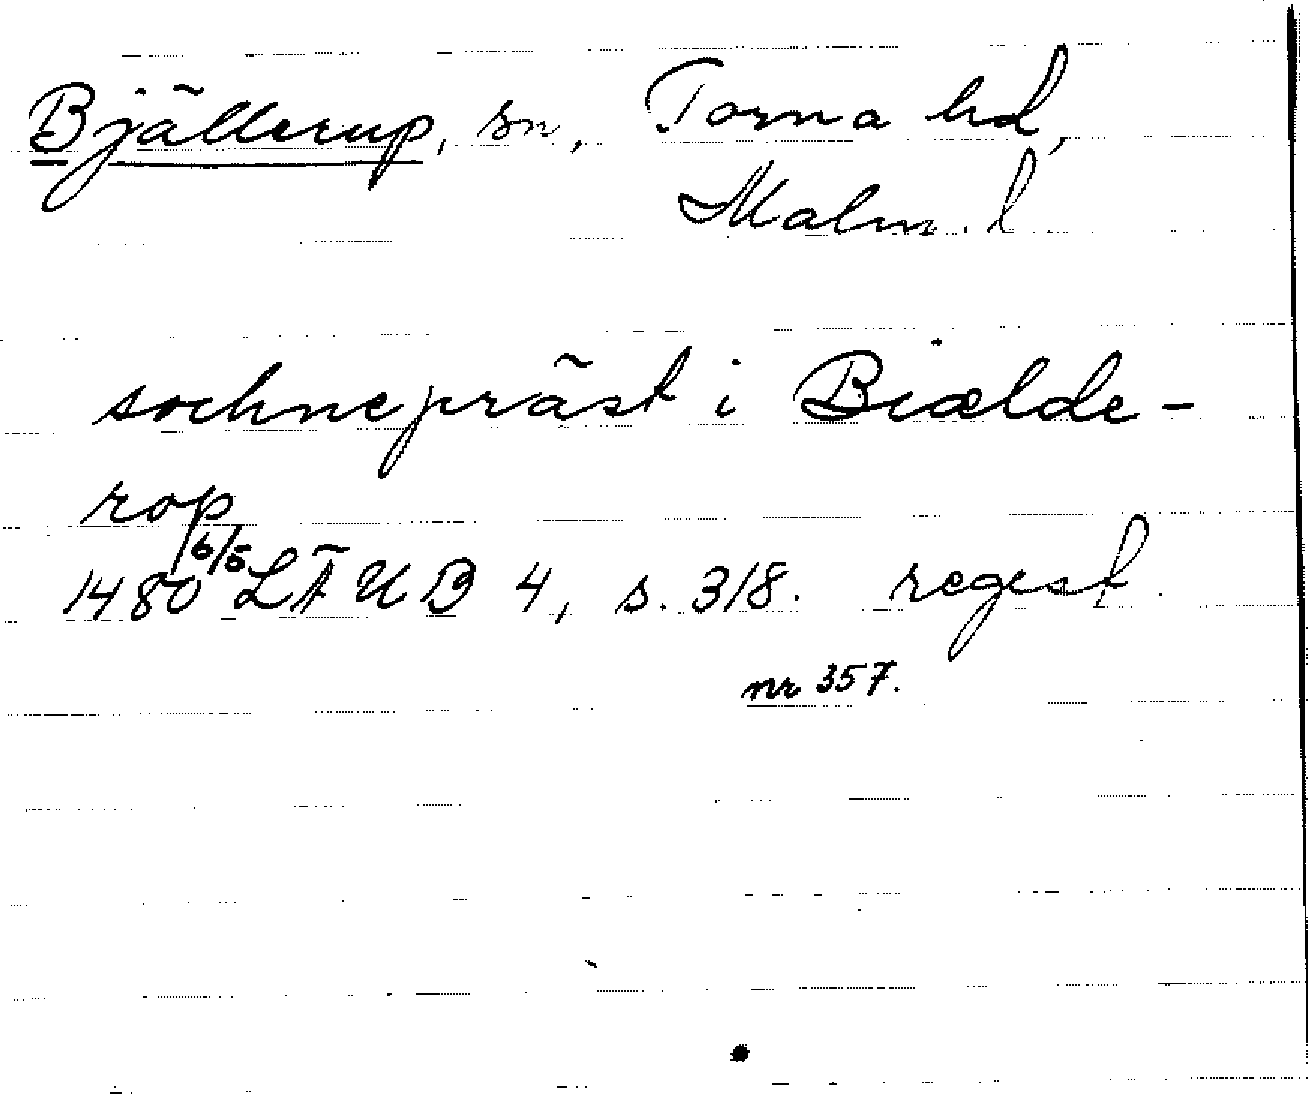 Bjällerup, sn, Torna hd,
Malm. l
sochnepräst i Biælde-
rop
1480 6/5 LÄUB 4, s. 318. regest
nr 357.